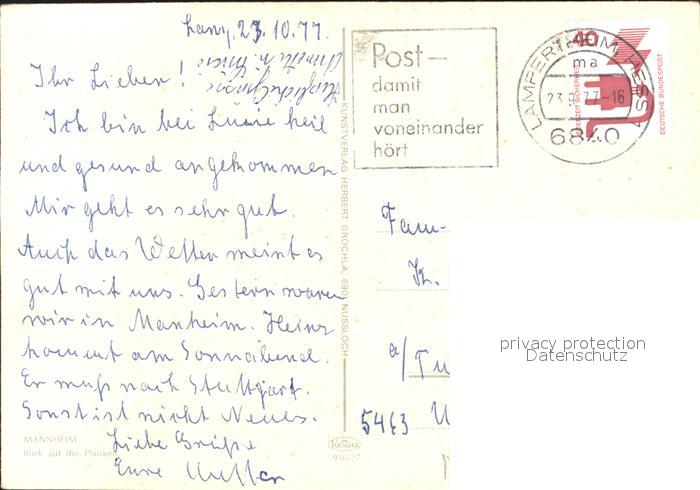 23.10.77.
Ihr Lieben!
Herzliche Grüsse
Ich bin bei Luise heil
und gesund angekommen
Mir geht es sehr gut.
Auch das Wetter meint es
gut mit uns. Gestern waren
wir in Manheim. Heinz
kommt am Sonnabend.
Er muß nach Stuttgart.
Sonst ist nicht Neues.
Liebe Grüße
Eure Mutter
MANNHEIM
Blick auf die Planken
KUNSTVERLAG HERBERT GROCHLA, 6901 NUSSLOCH
Krüger
956/27
Post –
damit
man
voneinander
hört
LAMPERTHEIM, HESS
ma
23.9.77-16
6840
40
DEUTSCHE BUNDESPOST
Fam-
K.
a/Tu
5463 U
privacy protection
Datenschutz